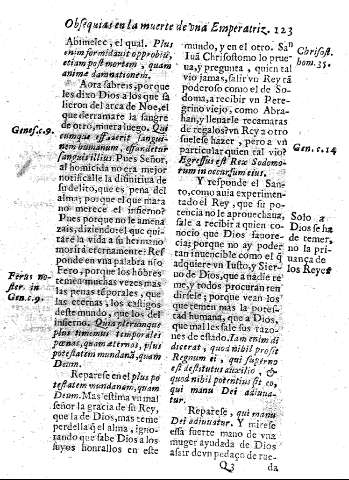 Obsequias en la muerte de vna Emperatriz. 123
Abimelec, el qual. Plus
enim formidavit opprobiũ,
etiam post mortem, quam
anime damnationem.
Aora sabreis, porque
les dixo Dios a los que sa
lieron del arca de Noe, el
que derramare la sangre
de otro, muera luego. Qui
cumque effuderit sangui-
nem humanum, effundetur
sanguis illius. Pues Señor,
al homicida no era mejor
notificalle la difinitiua de
su delito, que es pena del
alma; porque el que mata
no merece el infierno?
Pues porque no le amena
zais, diziendo: el que qui-
tare la vida a su hermano
morirà eternamente? Ref
ponde en vna palabra nr̃o
Fero, porque los hõbres
temen muchas vezes mas
las penas tẽporales, que
las eternas; los castigos
deste mundo, que los del
infierno. Quia plerunque
plus timemus temporales
pœnas, quam æternas, plus
potestatem mundanã, quam
Deum.
Reparese en el plus po
testatem mundanam, quam
Deum. Mas estima vn mal
señor la gracia de su Rey,
que la de Dios, mas teme
perdella q̃ el alma, igno-
rando que sabe Dios a los
suyos honrallos en este
Genes. c. 9.
Ferus no-
ster. in
Gen. c. 9.
mundo, y en el otro. Sã
Iuã Chrisostomo lo prue-
ua, y pregunta, quien tal
vio jamas, salir vn Rey tã
poderoso como el de So-
doma, a recibir vn Pere-
grino viejo, como Abra-
han, y llenarle recamaras
de regalos? vn Rey a otro
suelese hazer, pero a vn
particular quien tal vio?
Egressus est Rex Sodomo-
rum in occursum eius.
Y responde el San-
to, como auia experimen-
tado el Rey, que su po-
tencia no le aprouechaua,
sale a recibir a quien co-
nocio que Dios fauore-
cia; porque no ay poder
tan inuencible como el q̃
adquiere vn Iusto, y Sier-
uo de Dios, que a nadie te
me, y todos procuran ren
dirsele; porque vean los
que temen mas la potes-
tad humana, que a Dios,
que mal les sale sus razo-
nes de estado. Iam enim di
dicerat, quod nihil prosit
Regnum ei, qui superno
est destitutus auxilio, &
quod nihil potentius sit eo,
qui manu Dei adiuua-
tur.
Reparese, qui manu
Dei adiuuatur. Y mirese
essa fuerte mano de vna
muger ayudada de Dios
asar de vn pedaço de rue-
Chrisost.
hom. 35.
Gen. c. 14
Solo a
Dios se ha
de temer,
no la pri-
uança de
los Reyes
Q3 da